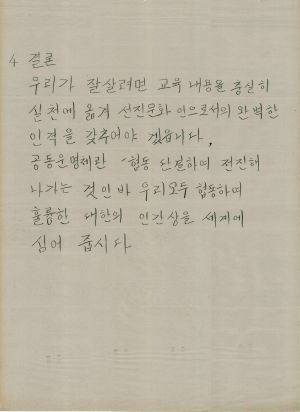 4 결론
우리가 잘살려면 교육 내용을 충실히
실천에 옮겨 선진문화 인으로서의 완벽한
인격을 갖추어야 겠읍니다.
공동운명체란 협동 단결하여 전진해
나가는 것인바 우리모두 협동하여
훌륭한 대한의 인간상을 세계에
심어 줍시다